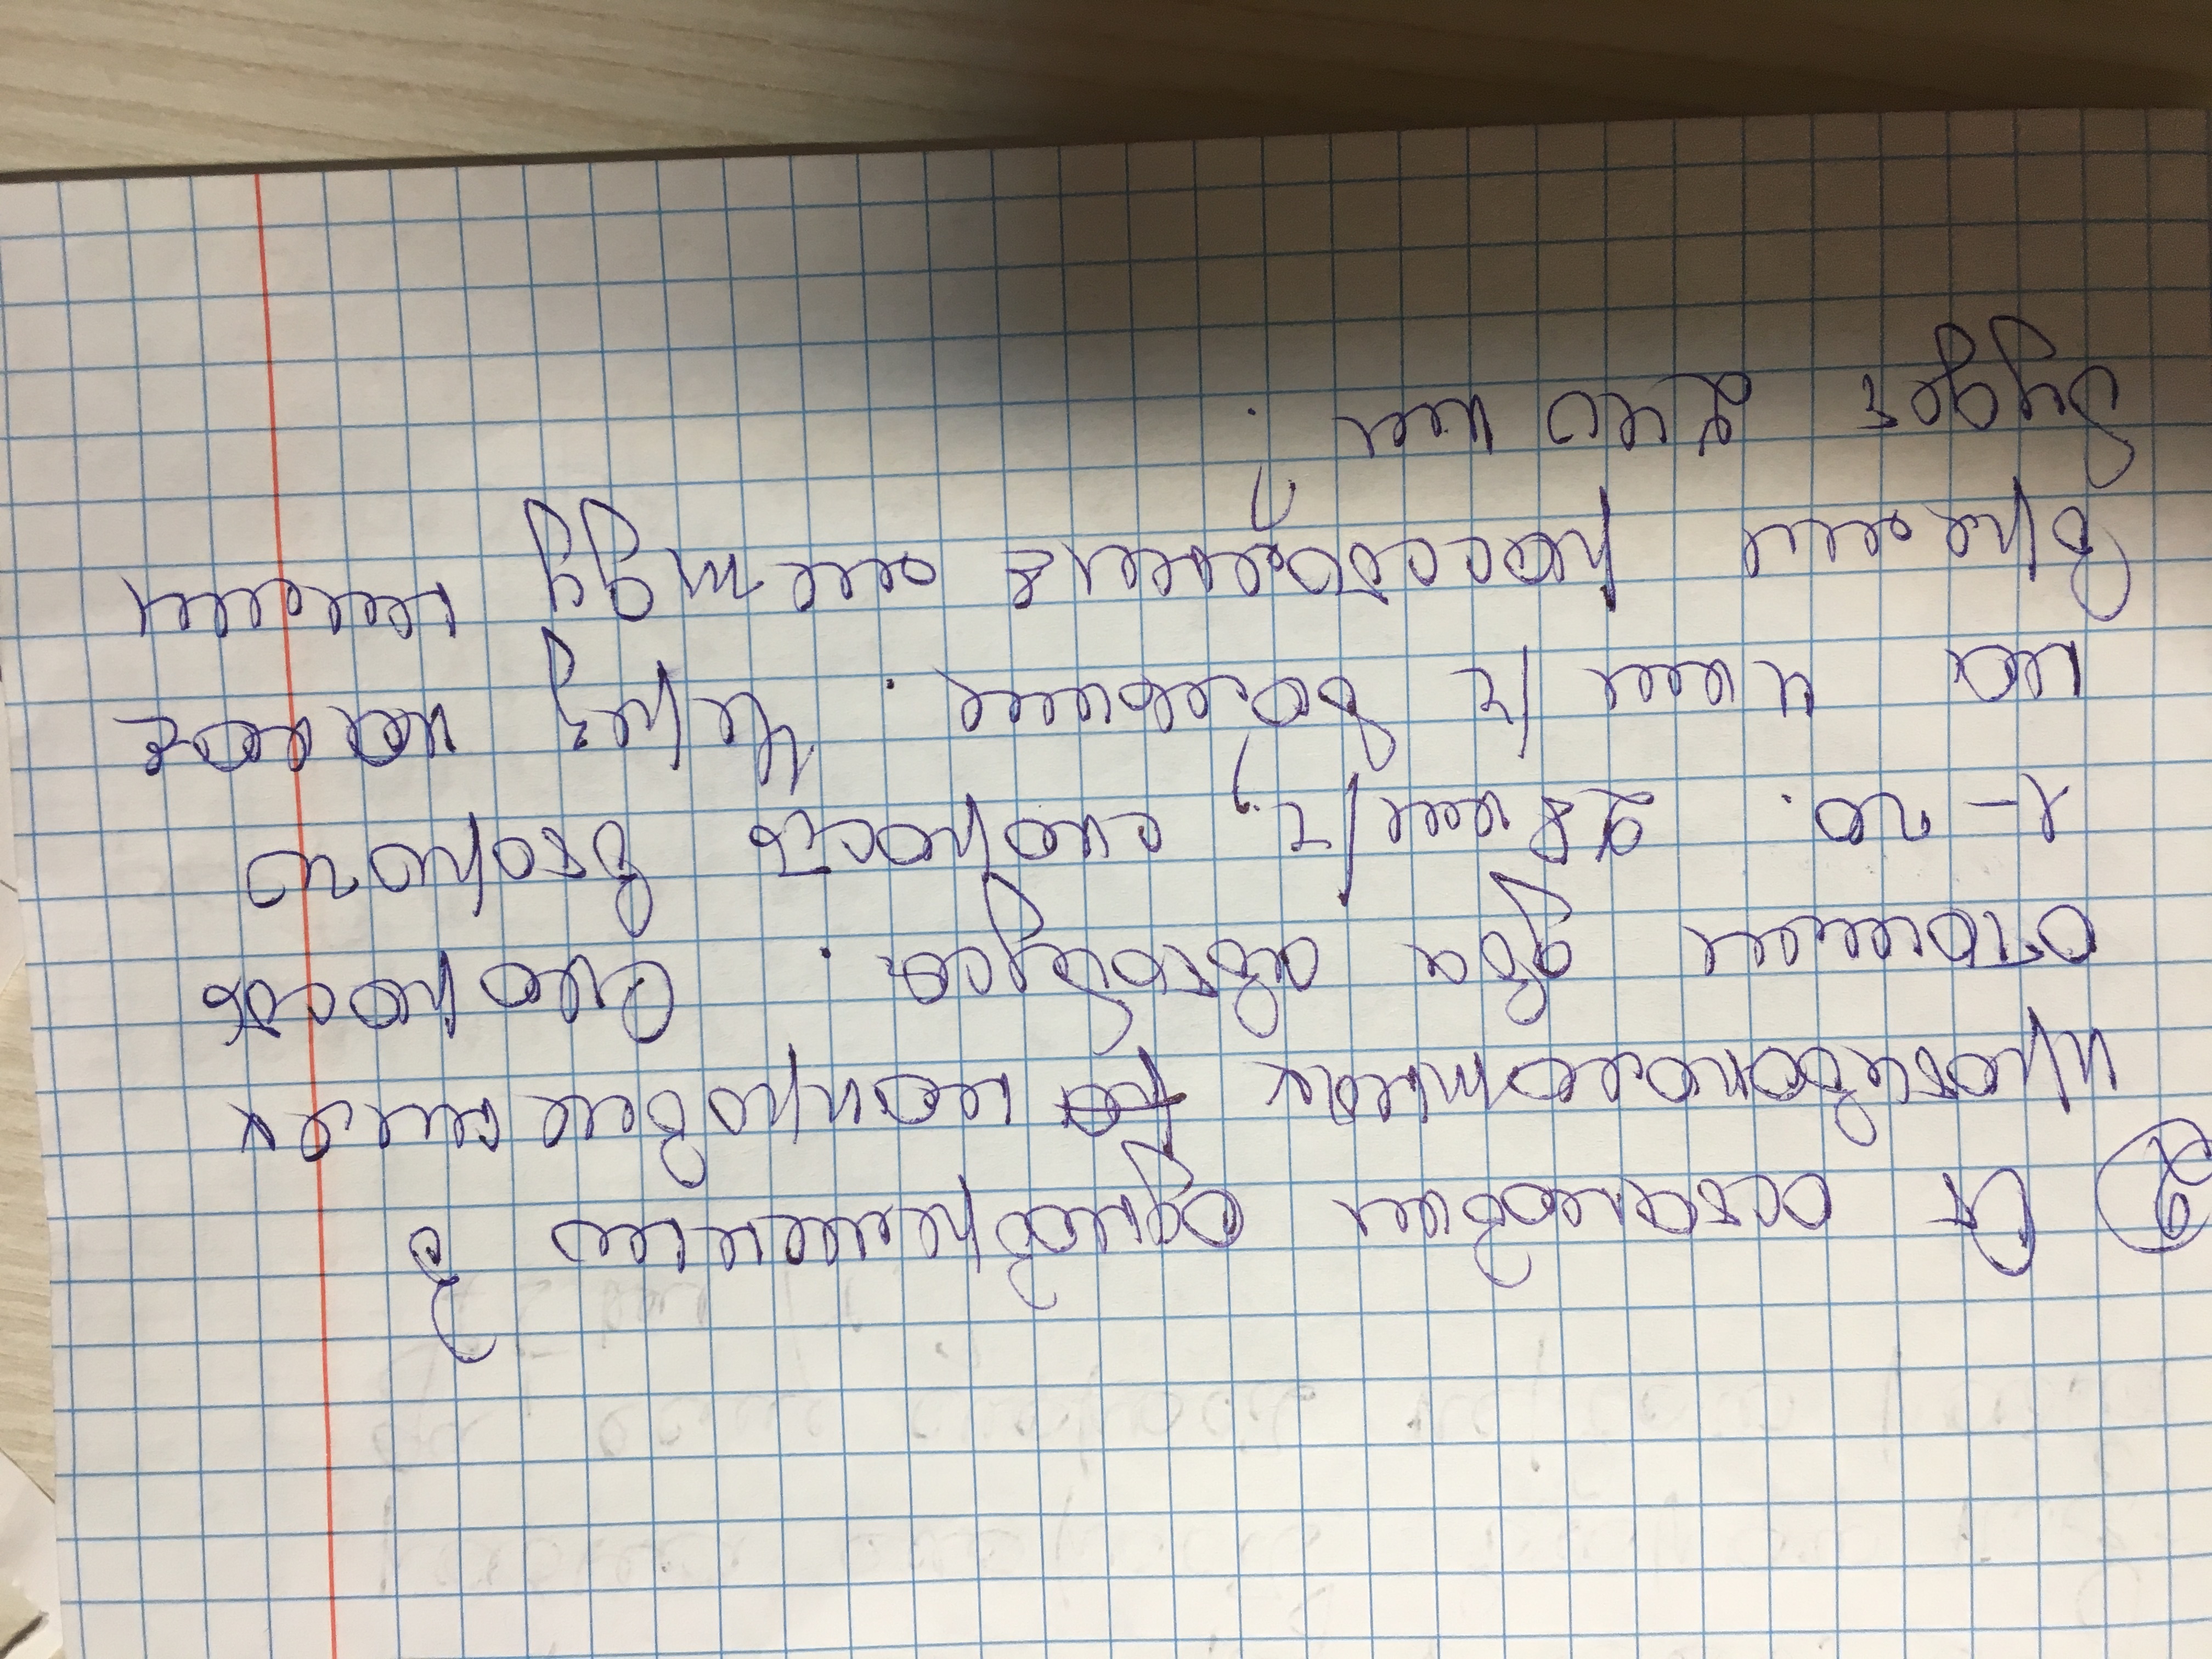 От остановки одновременно в
противоположных направлениях
отошли два автобуса. Скорость
1-го. км/ч, скорость второго
на км/ч больше. Через какое
время расстояние между ними
будет км.